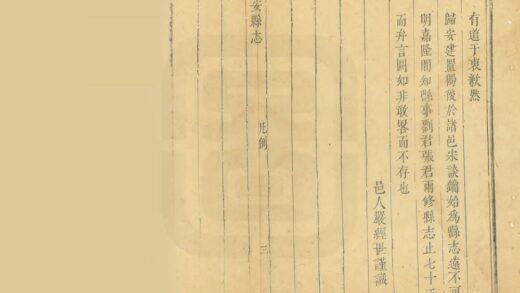 有道于衷歉然
歸安建置獨後於諸邑宋談鑰始為縣志遠不可
明嘉隆間知縣事劉君張君兩修縣志止七十
而弁言闕如非敢畧而不存也
邑人嚴經世謹識
安縣志
凡例
三